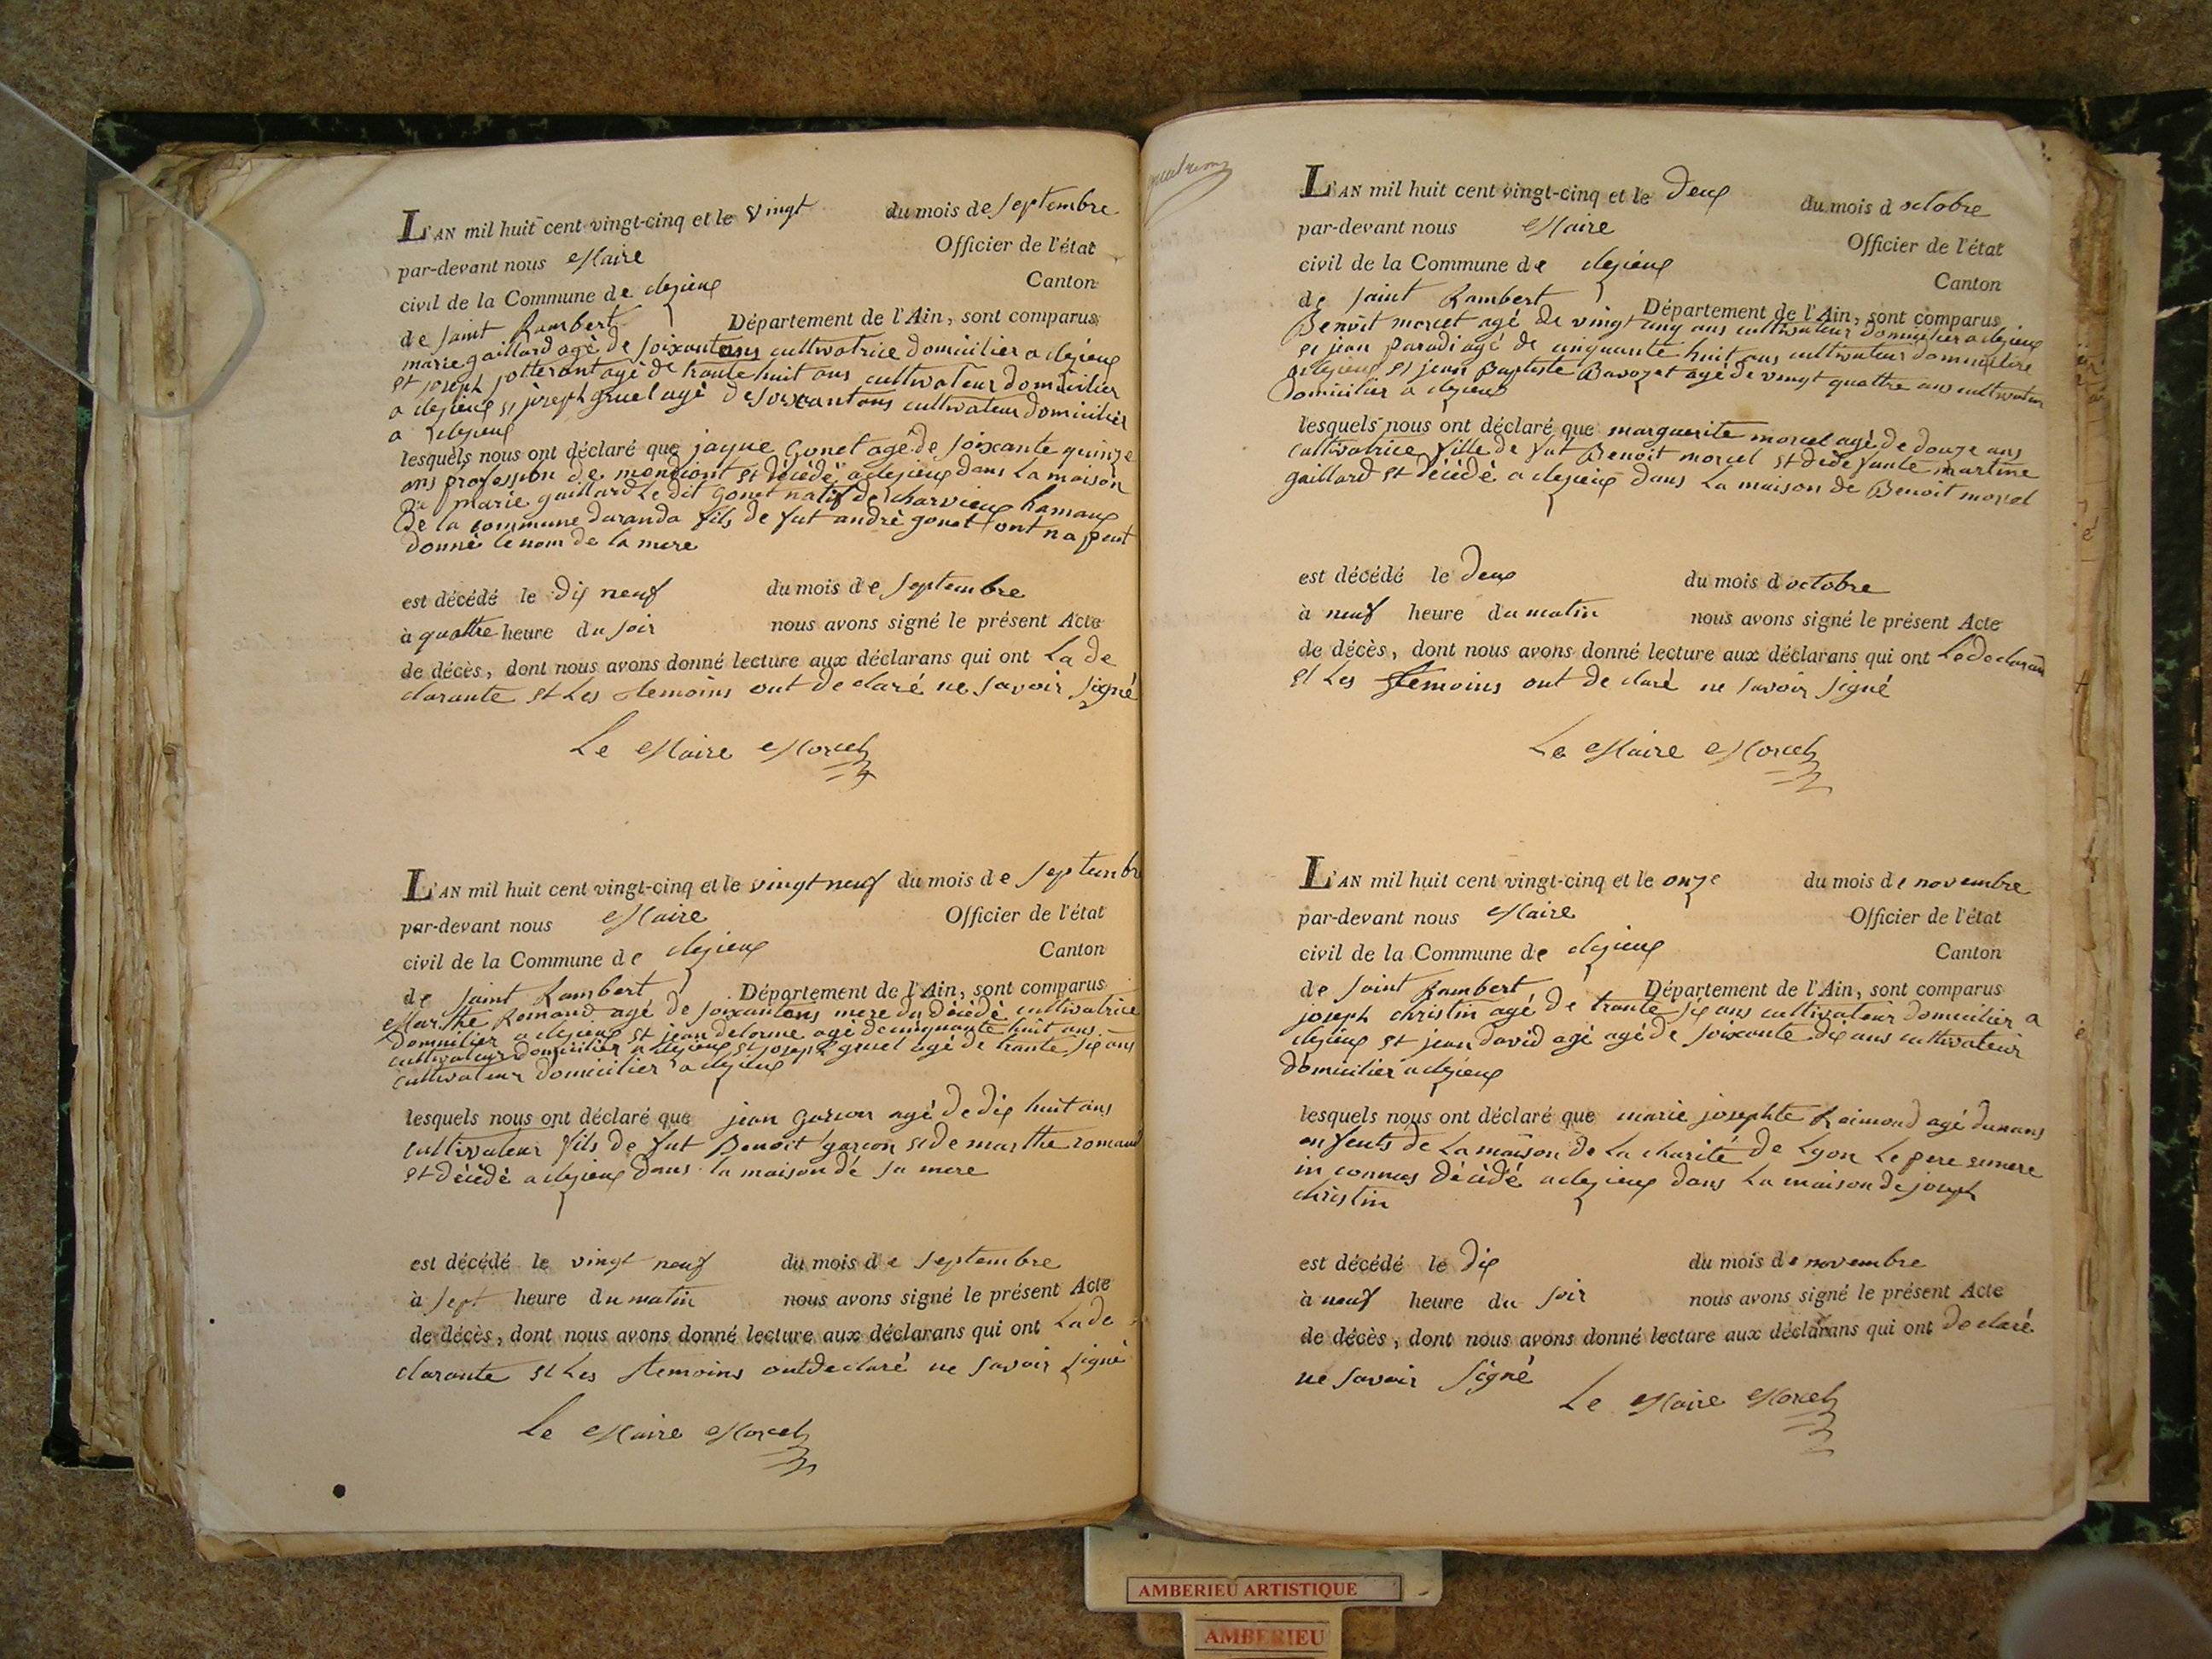 L'AN mil huit cent vingt-cinq et le vingt du mois de septembre
par-devant nous Maire Officier de l'état
civil de la Commune de clezieux Canton
de saint Rambert Département de l'Ain, sont comparus
marie gaillard agé de soixantans cultivatrice domicilier a clezieux
et joseph jotterant agé de trante huit ans cultivateur domicilier
a clezieux et joseph gruel agé de soixantans cultivateur domicilier
a clezieux
lesquels nous ont déclaré que jaque Gonet agé de soixante quinze
ans profession de mendiant et décédé a clezieux dans la maison
de marie gaillard le dit gonet natif de charvieux hamaux
de la commune daranda fils de fut andré gonet ont na peut
donné le nom de la mere
est décédé le dix neuf du mois de septembre
à quattre heure du soir nous avons signé le présent Acte
de décès, dont nous avons donné lecture aux déclarans qui ont La de
clarante et Les temoins ont declaré ne savoir signé
Le Maire Morcel
L'AN mil huit cent vingt-cinq et le vingt neuf du mois de septembr
par-devant nous Maire Officier de l'état
civil de la Commune de clezieux Canton
de saint Rambert Département de l'Ain, sont comparus
Marthe Romand agé de soixantans mere du décédé cultivatrice
domicilier a clezieux et jean delorme agé de cinquante huit ans
cultivateur domicilier a clezieux et joseph gruel agé de trante six ans
cultivateur domicilier a clezieux
lesquels nous ont déclaré que jean garcon agé de dix huit ans
cultivateur fils de fut Benoit garcon et de marthe romand
et décédé a clezieux dans la maison de sa mere
est décédé le vingt neuf du mois de septembre
à sept heure du matin nous avons signé le présent Acte
de décès, dont nous avons donné lecture aux déclarans qui ont La de
clarante et Les temoins ont declaré ne savoir signé
Le Maire Morcel
L'AN mil huit cent vingt-cinq et le deux du mois d octobre
par-devant nous Maire Officier de l'état
civil de la Commune de clezieux Canton
de saint Rambert Département de l'Ain, sont comparus
Benoit morcel agé de vingt cinq ans cultivateur domicilier a clezieux
et jean paradi agé de cinquante huit ans cultivateur domicilier
a clezieux et jean Baptiste Bavozet agé de vingt quattre ans cultivateur
domicilier a clezieux
lesquels nous ont déclaré que marguerite morcel agé de douze ans
cultivatrice fille de fut Benoit morcel et de defante martine
gaillard et décédé a clezieux dans la maison de Benoit morcel
est décédé le deux du mois d octobre
à neuf heure du matin nous avons signé le présent Acte
de décès, dont nous avons donné lecture aux déclarans qui ont Le declaran
et Les temoins ont declaré ne savoir signé
Le Maire Morcel
L'AN mil huit cent vingt-cinq et le onze du mois de novembre
par-devant nous Maire Officier de l'état
civil de la Commune de clezieux Canton
de saint Rambert Département de l'Ain, sont comparus
joseph christin agé de trante six ans cultivateur domicilier a
clezieux et jean david agé agé de soixante dix ans cultivateur
domicilier a clezieux
lesquels nous ont déclaré que marie josephte Raimond agé dunans
enfents de La maison de La charité de Lyon Le pere et mere
in connus décédé a clezieux dans La maison de joseph
christin
est décédé le dix du mois de novembre
à neuf heure du soir nous avons signé le présent Acte
de décès, dont nous avons donné lecture aux déclarans qui ont declaré
ne savoir signé
Le Maire Morcel
AMBERIEU ARTISTIQUE
AMBERIEU